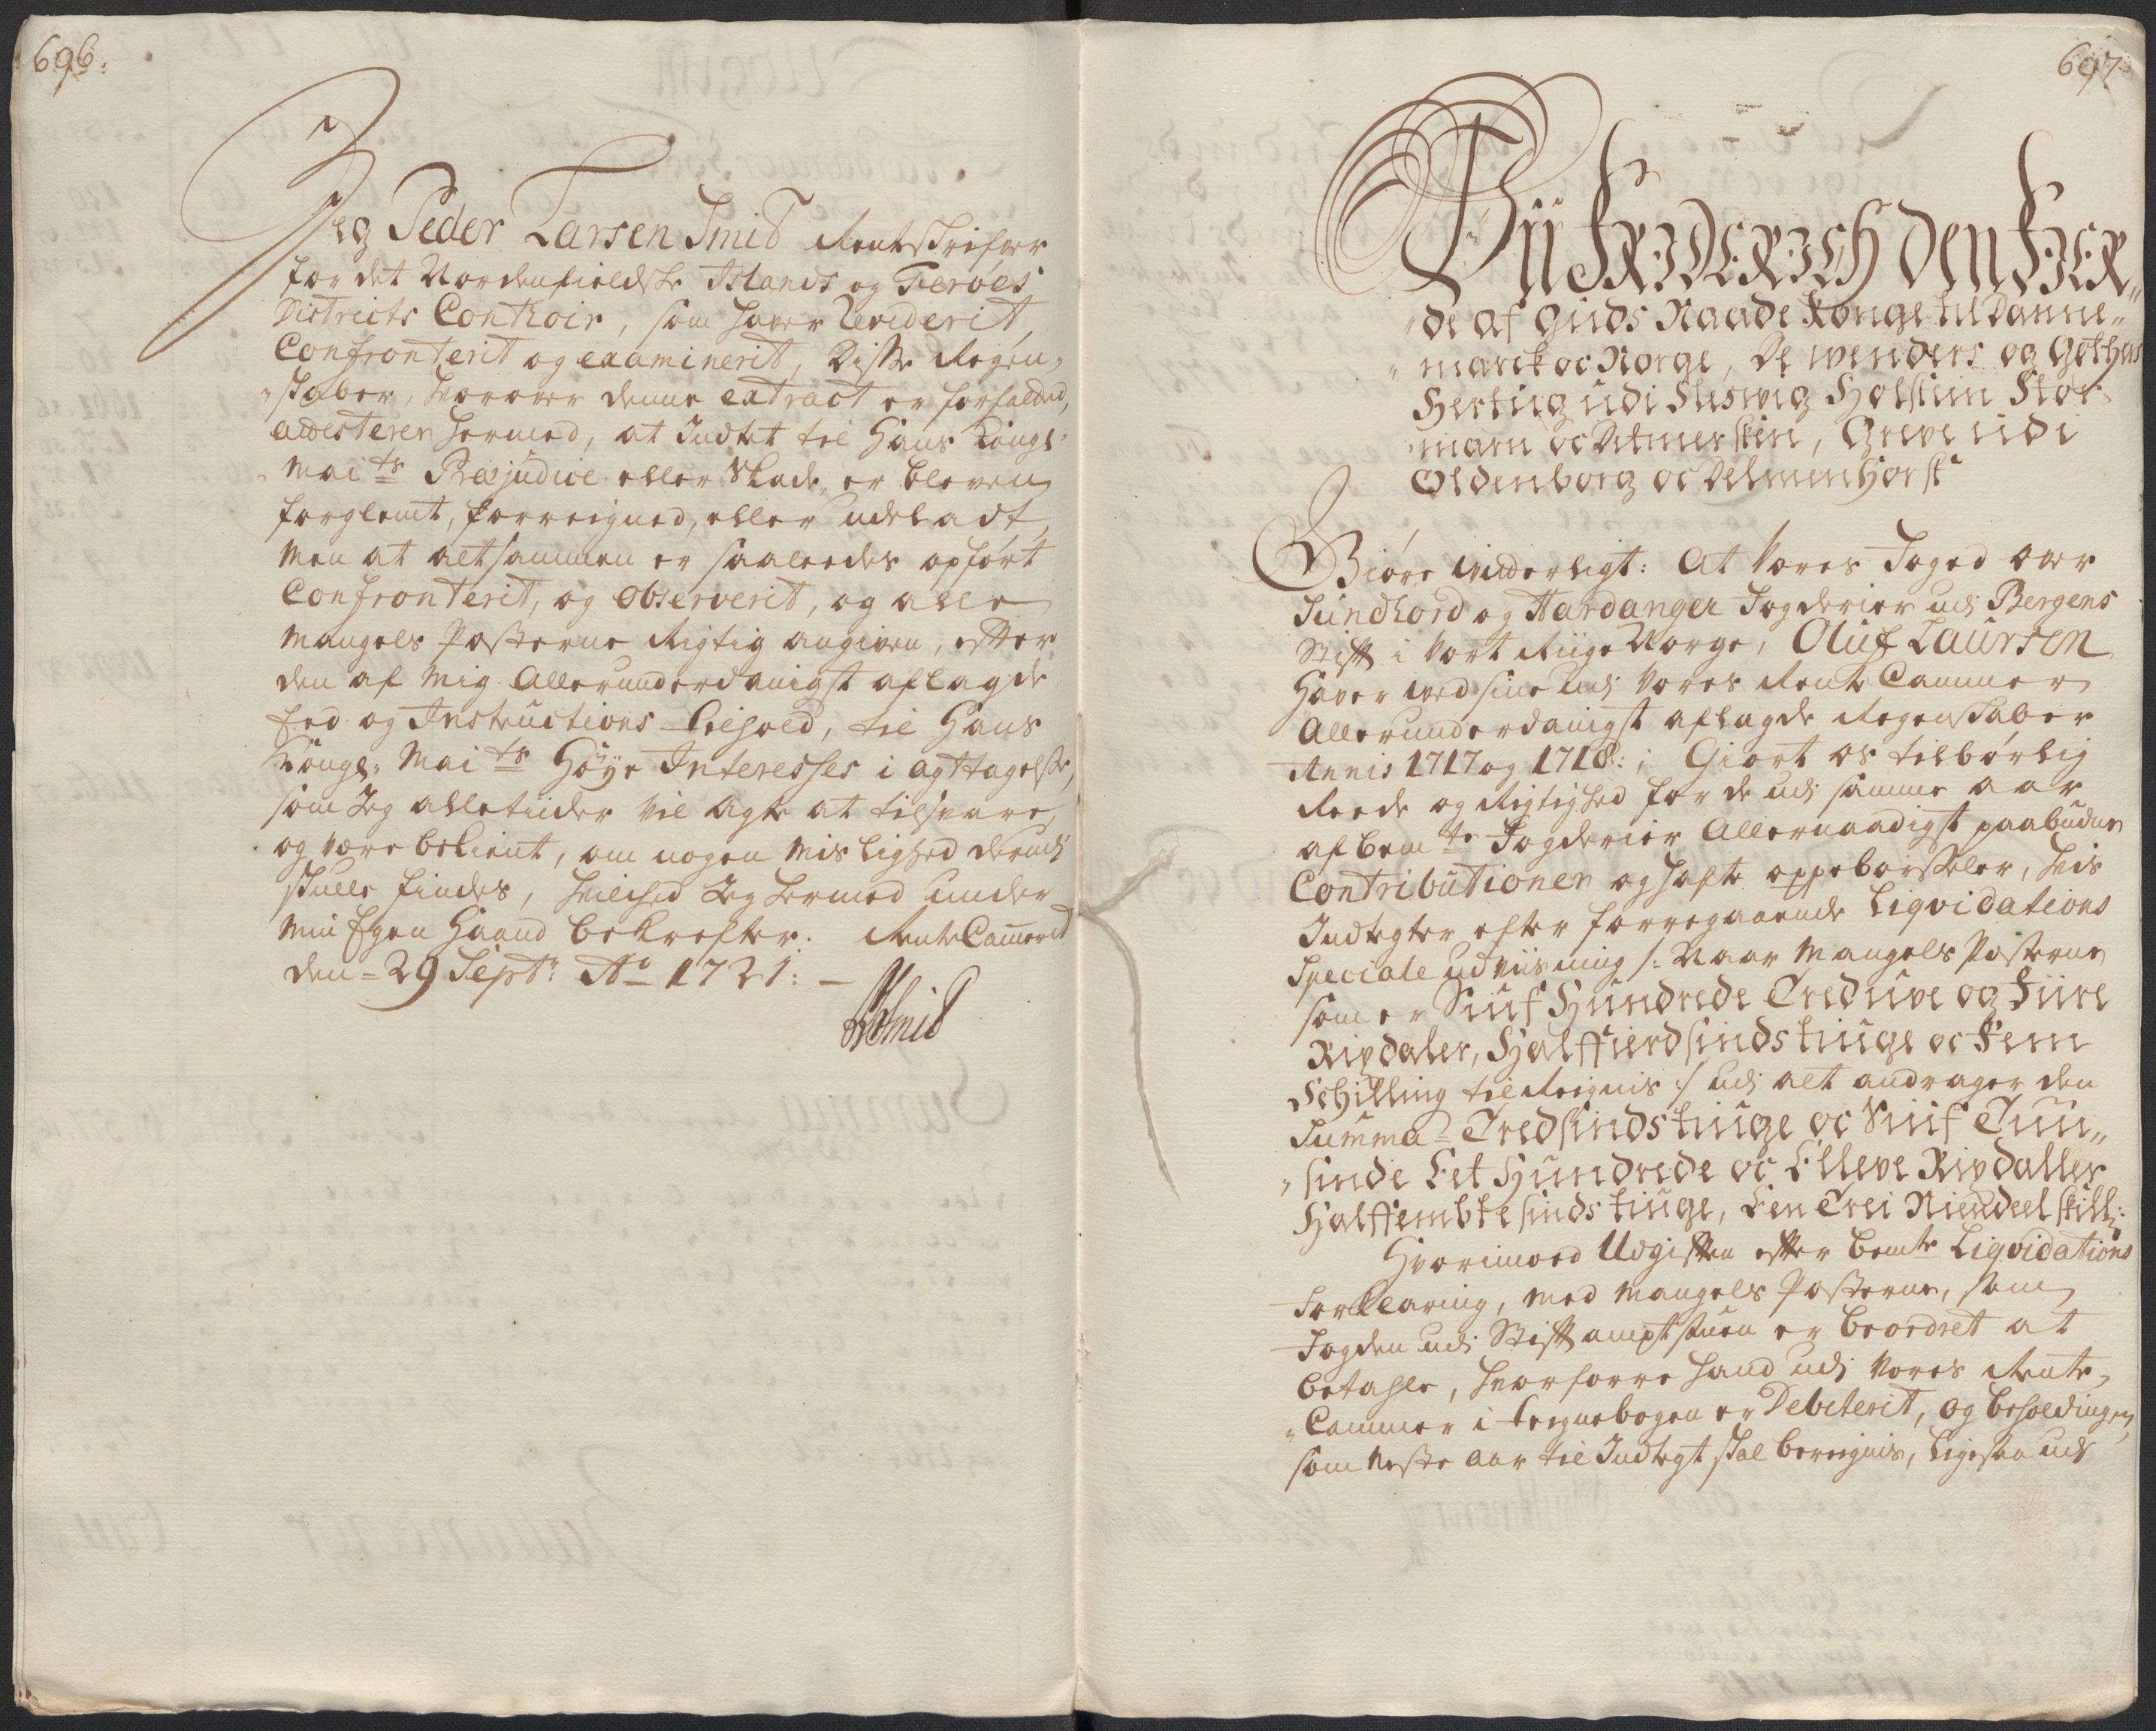 696.
Jeg Peder Larsen Smid Rentskrifver
for det Nordenfieldske Islands og Færöes
Districts Conthoir, som haver Reviderit,
Confronterit og examinerit, disse Regen-
skaber, hvorover denne extract er forfatted,
attesterer hermed, at Indtet til Hans Kongl.
Maits Præjudice eller Skade, er bleven
forglemt, forreigned, eller udeladt,
Men at altsammen er saaleedes opført
Confronterit, og Observerit, og alle
Mangels Posterne Rigtig angiven, efter
den af Mig Allerunderdanigst aflagde
Eed og Instructions Eehold, til Hans
Kongl. Maits Høye Interesses i agttagelse,
som Jeg alletiider vil agte at tilsvare,
og være bekient, om nogen Mislighed derudj
skulle findes, hvilched Jeg hermed under
Min Egen Haand bekrefter. RenteCammerit
den 29 Septr. Ao 1721:
PLSmid
697
Vii FRIDERICH DEN FIER„
„de af Guds Naade Konge til Danne„
„marck oc Norge, De Wenders og Gothers
Hertug udi Slesvig Holsten Stor-
marn oc Ditmersken, Greve udi
Oldenborg oc Delmenhorst
Giöre Witterligt: At Vores Foged over
Sundhord og Hardanger Fogderier udj Bergens
Stift i Vort Riige Norge, Oluf Laursen
Haver ved sine udj Vores Rente Cammer
Allerunderdanigst aflagde Regenskaber
Annis 1717 og 1718:, Giort os tilbørlig
Reede og Rigtighed for de udj samme aar
af bemte Fogderier Allernaadigst paabudne
Contributioner og hafte oppebørseler, hvis
Indtegter efter forregaaende Liqvidations
Speciale udviisning /: Naar Mangels Posterne
som er Siuf Hundrede Tredive og Fiire
Rixdaler, Halffierdsindstiuge oc Fem
Schilling til Reignis :/ udj alt andrager den
Summa Tredsindstiuge oc Siuf Tuu„
„sinde Eet Hundrede oc Elleve Rixdaller
Halffembtesindstiuge, Een Trei Niendeel skill:
Hvorimod Udgiften efter bemte Liqvidations
Forklaring, med Mangels Posterne, som
Fogden udj Stiftamptstuen er beordret at
betahle, hvorforre hand udj Vores Rente-
„Cammer i Reignebogen er Debiterit, og besoldingen
som Neste aar til Indtegt skal bereignis, ligesaa udj